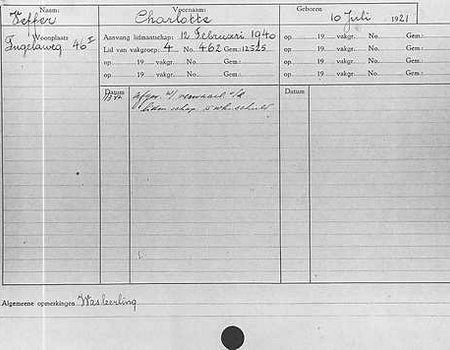 Naam: Voornaam: Geboren
Veffer Charlotte 10 Juli 1921
Woonplaats Aanvang lidmaatschap: 12 Februari 1940 op 19 vakgr. No. Gem.:
46 I Lid van vakgroep: 4 No. 462 Gem.: 12525 op 19 vakgr. No. Gem.:
op 19 vakgr. No. Gem.: op 19 vakgr. No. Gem.:
op 19 vakgr. No. Gem.: op 19 vakgr. No. Gem.:
Datum Datum
afgev.
schuld
Algemeene opmerkingen Wasleerling